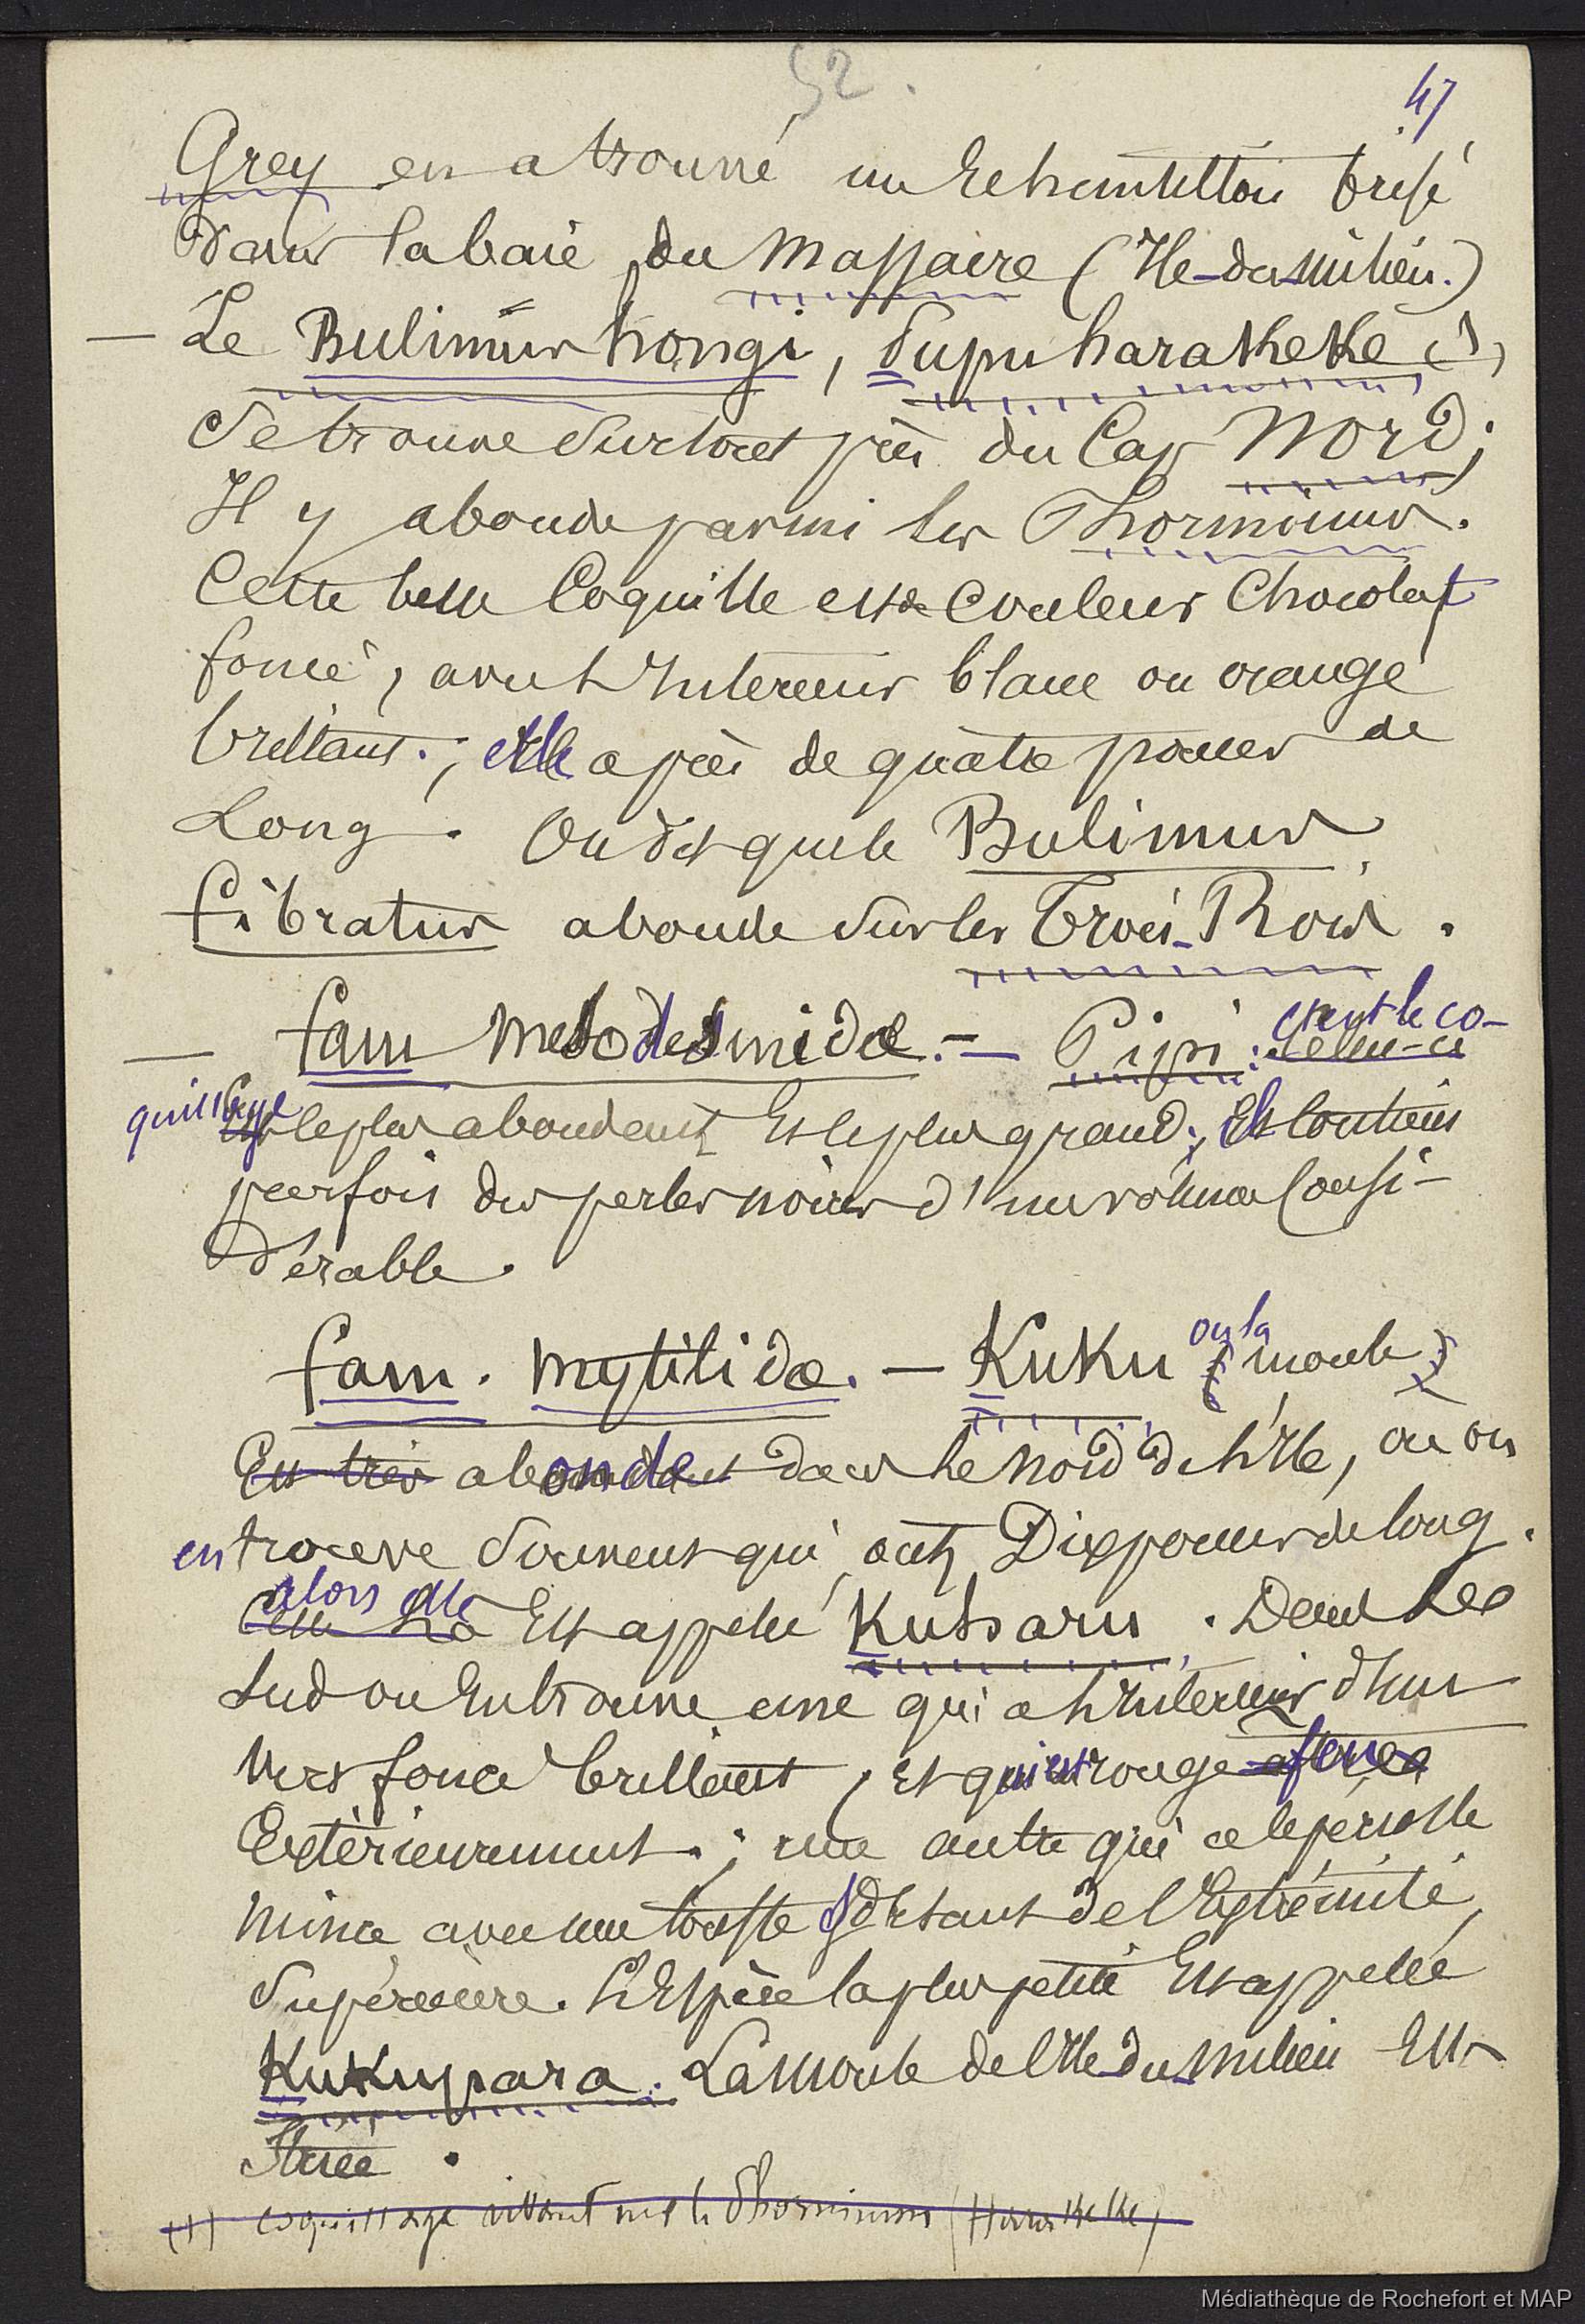 52.
47
Grey en a trouvé un Echantillon brisé
dans la baie du Massacre (Ile-du-Milieu.)
— Le Bulimus hongi, Pupu harakeke (1),
Se trouve Surtout près du Cap Nord;
Il y abonde parmi les Phormiums.
Cette belle Coquille est de Couleur Chocolat
foncé, avec l'Intérieur blanc ou orangé
brillant.; elle a près de quatre pouces de
Long. On dit que le Bulimus
fibratus abonde Sur les Trois-Rois.
— fam Mesodesmidæ. — Pipi: c'est le co-
Celui-ci
quillage le plus abondant Et le plus grand; Il Contient
parfois des perles noires d'un volume Consi-
dérable.
fam. Mytilidæ. — Kuku ou la (moule)
Est très abonde dans le Nord de l'Ile, où on
en trouve Souvent qui ont Dix pouces de long.
alors elle
Celle-là Est appelée Kutsaru. Dans le
Sud on En trouve une qui a l'Intérieur d'un
Vert foncé brillant, Et qui est rouge foncé
Extérieurement.; une autre qui a le périoste
Mince avec une touffe Sortant de l'Extrémité
Supérieure. L'Espèce la plus petite Est appelée
Kukupara. La Moule de l'Ile-du-Milieu Est
Striée.
(1) Coquillage vivant sur le Phormium (Harakeke)
Médiathèque de Rochefort et MAP